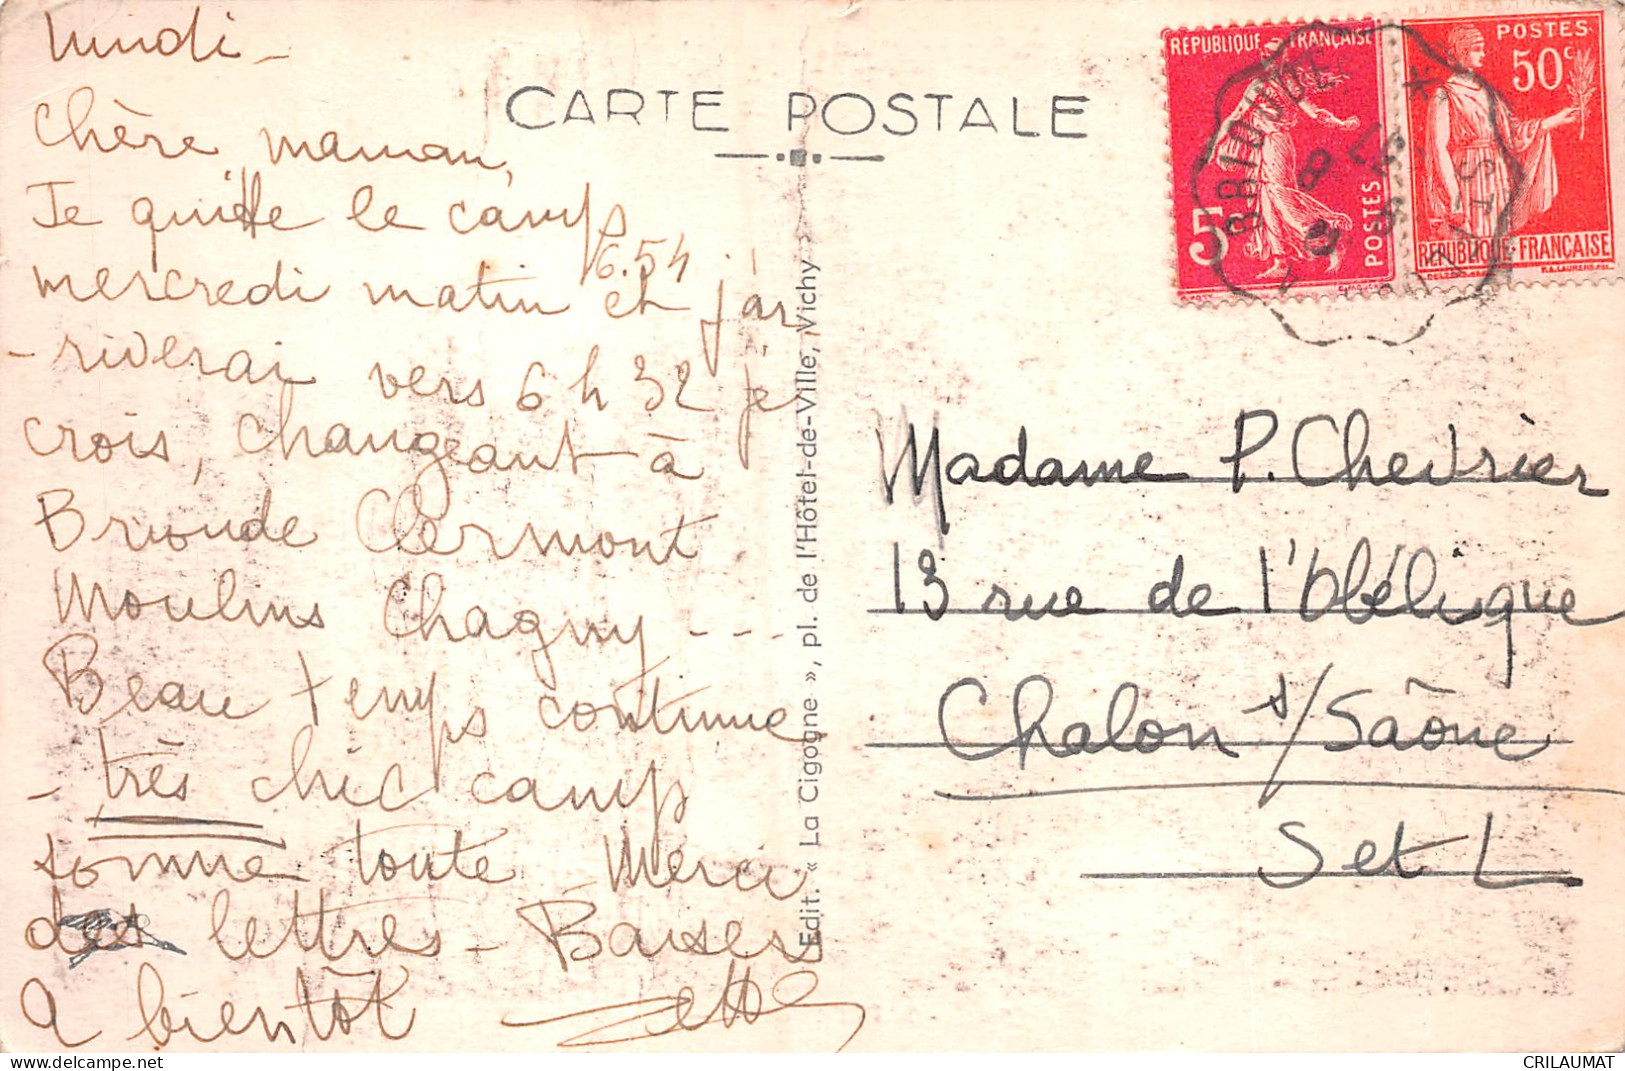 lundi -
Chère maman,
Je quitte le camp
6.54
mercredi matin et j'ar
- riverai vers 6 h 32 je
crois, changeant à
Brioude Clermont
Moulins Chagny ---
Beau temps continue
- très chic camp
somme toute Merci
des lettres - Baisers
A bientôt
CARTE POSTALE
Edit. « La Cigogne », pl. de l'Hôtel-de-Ville, Vichy
REPUBLIQUE FRANÇAISE
5c
POSTES
POSTES
50c
REPUBLIQUE FRANÇAISE
BRIOUDE
Madame P. Chevrier
13 rue de l'Obélisque
Chalon s/Saône
S et L
delcampe.net
CRILAUMAT